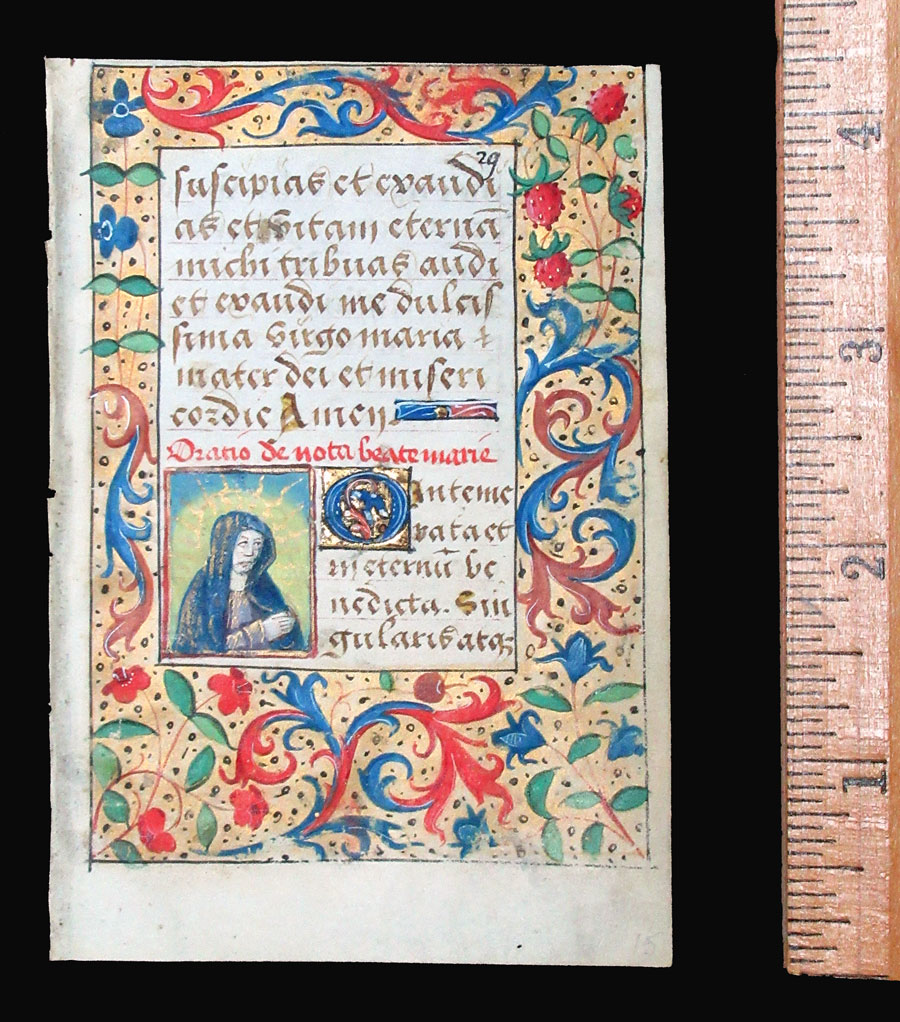 29
suscipias et exaudi
as et vitam eternā
michi tribuas audi
et exaudi me dulcis
sima virgo maria &
mater dei et miseri
cordie Amen.
Oratio de nota beate marie
O inteme
rata et
in eternū be
nedicta. Sin
gularis atqꝫ
15
4
3
2
1